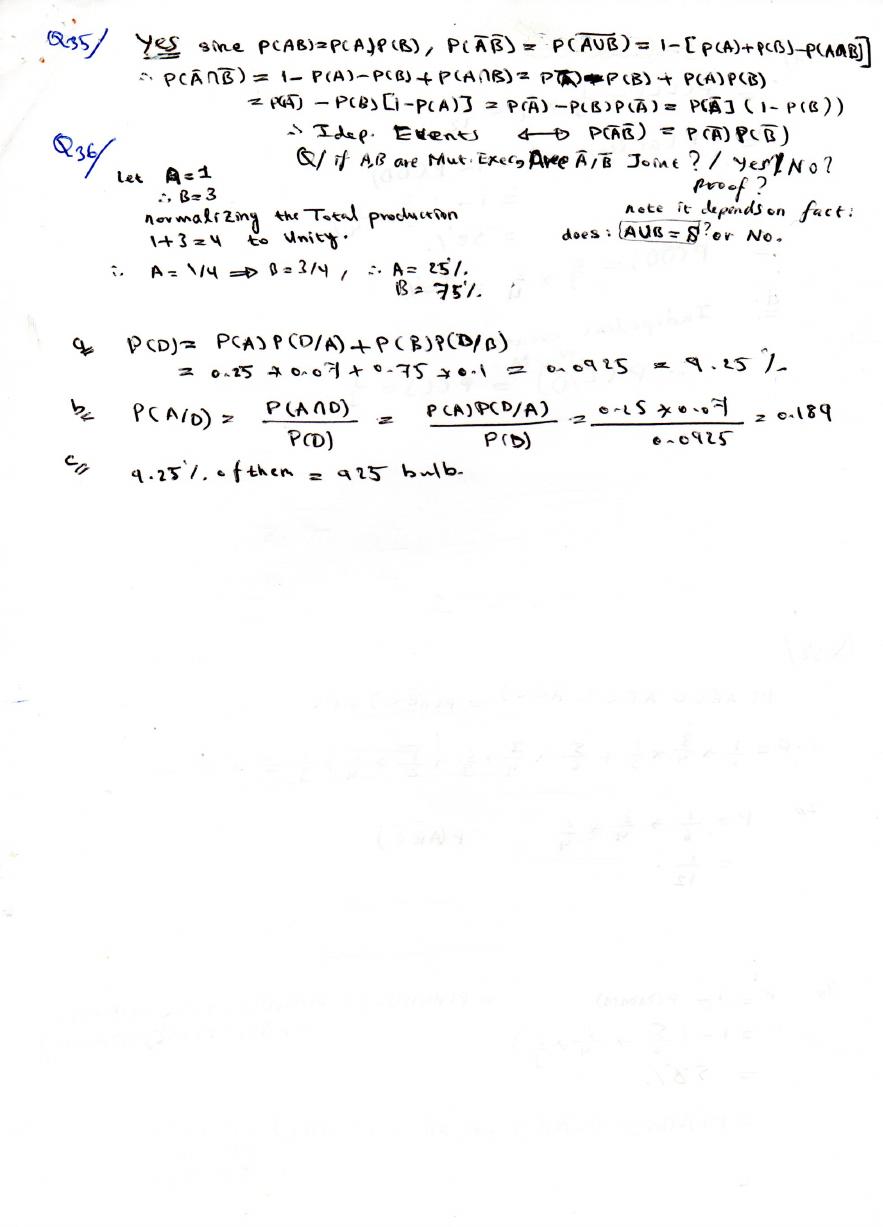 Q35/ Yes sine P(AB)=P(A)P(B), P(A̅B̅) = P(A̅U̅B̅) = 1-[P(A)+P(B)-P(A∩B)]
∴ P(A̅∩B̅) = 1- P(A)-P(B)+P(A∩B)= P(A̅)-P(B) + P(A)P(B)
= P(A̅) - P(B)[1-P(A)] = P(A̅)-P(B)P(A̅)= P(A̅)(1-P(B))
∴ Idep. Events ⟷ P(A̅B̅) = P(A̅)P(B̅)
Q/ if A,B are Mut. Exec, Aree A̅,B̅ Joint? / Yes/No?
Proof?
note it depends on fact:
does: AUB = S? or No.
Q36/
Let A=1
∴ B=3
normalizing the Total production
1+3=4 to Unity.
∴ A= 1/4 ⇒ B=3/4, ∴ A= 25%.
B= 75%.
a P(D)= P(A)P(D/A)+P(B)P(D/B)
= 0.25 * 0.07 + 0.75 * 0.1 = 0.0925 = 9.25 %
b P(A/D) = P(A∩D)/P(D) = P(A)P(D/A)/P(D) = 0.25 * 0.07/0.0925 = 0.189
c 9.25%. of them = 925 bulb.